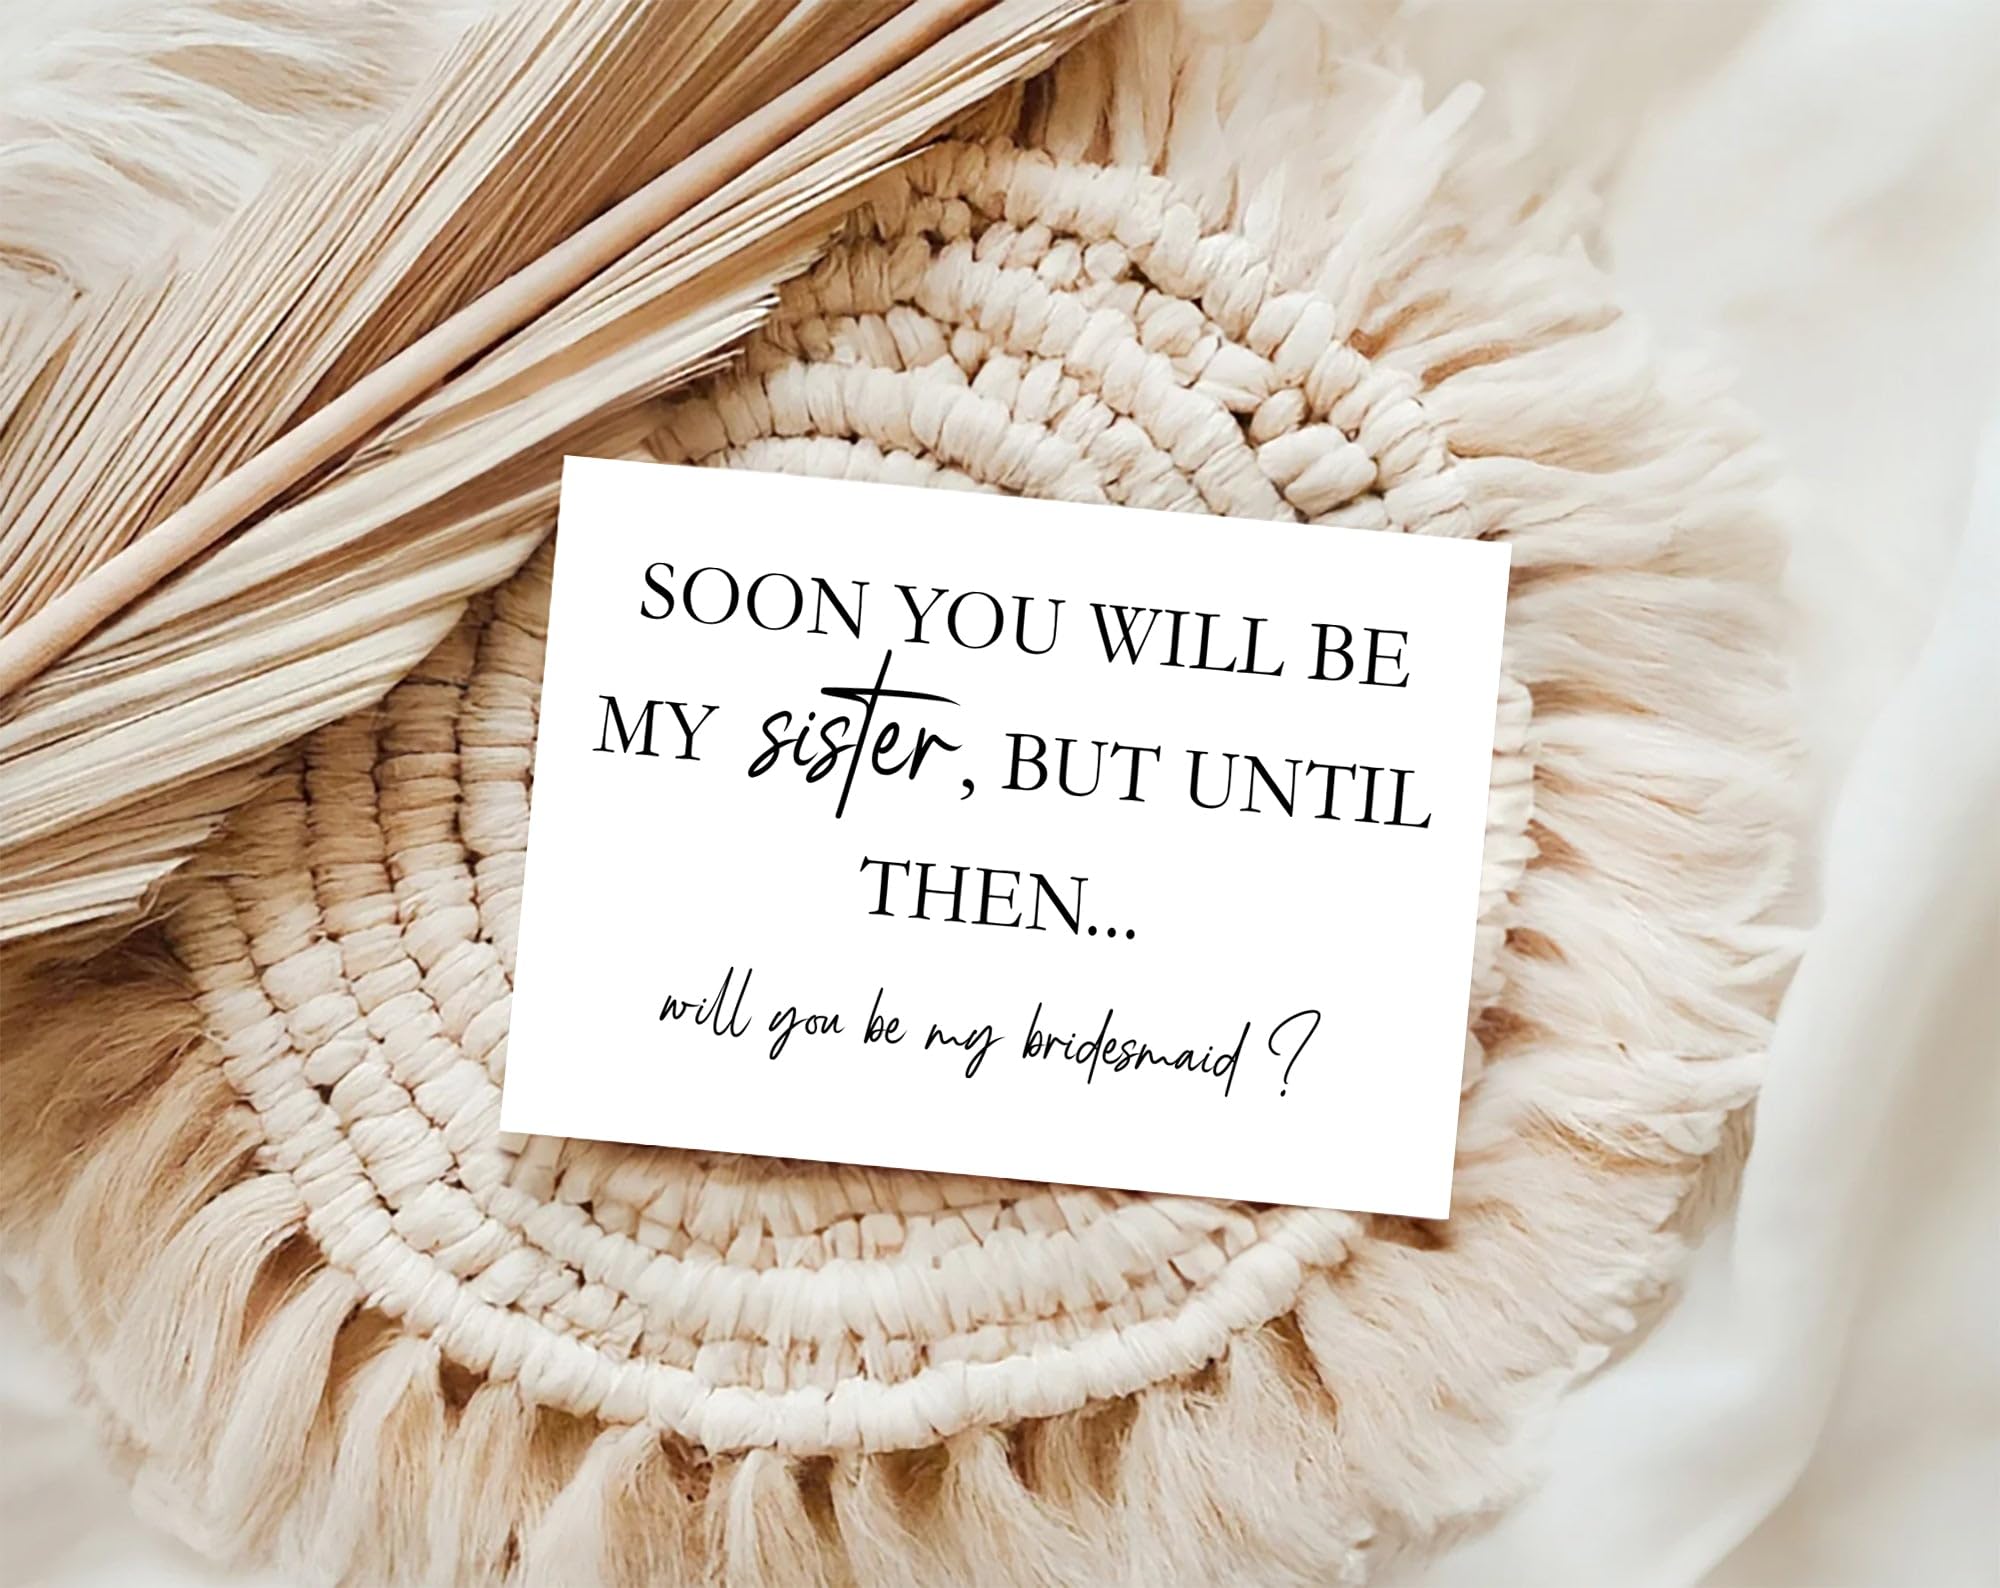 SOON YOU WILL BE
MY sister, BUT UNTIL
THEN...
will you be my bridesmaid ?